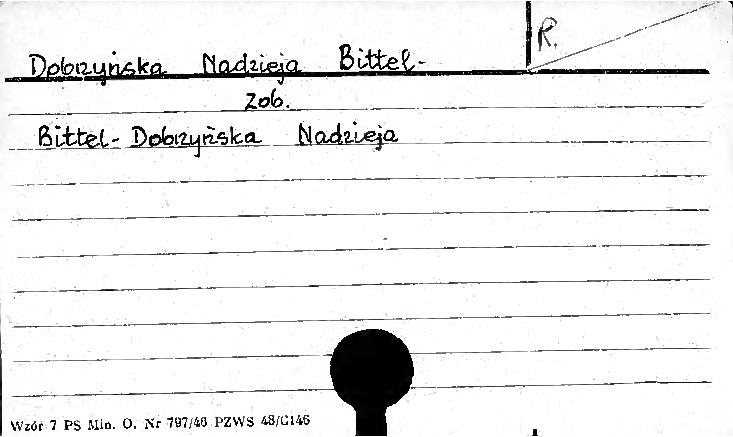 R.
Dobrzyńska Nadzieja Bittel-
zob.
Bittel-Dobrzyńska Nadzieja
Wzór 7 PS Min. O. Nr 797/46 PZWS 48/C146